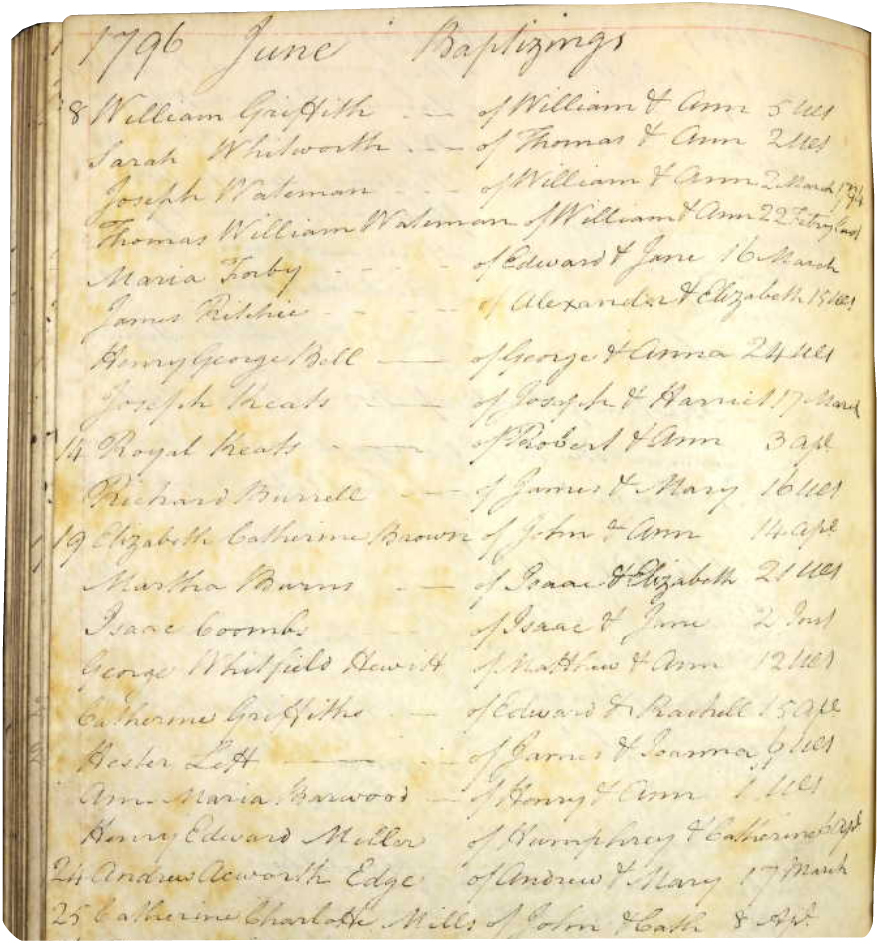 1796 June Baptizings
8 William Griffith of William & Ann 5 Ult
Sarah Whitworth of Thomas & Ann 2 Ult
Joseph Wateman of William & Ann 2 March 1794
Thomas William Wateman of William & Ann 22
Maria Forby of Edward & Jane 16 March
James Ritchie of Alexander & Elizabeth 15 Ult
Henry George Bell of George & Anna 24 Ult
Joseph Keats of Joseph & Harriet 17 March
14 Royal Keats of Robert & Ann 3 Apl
Richard Burrell of James & Mary 16 Ult
19 Elizabeth Catherine Brown of John & Ann 14 Apl
Martha Burns of Isaac & Elizabeth 21 Ult
Isaac Coombs of Isaac & Jane 2 Inst
George Whitfield Hewitt of Matthew & Ann 12 Ult
Catherine Griffiths of Edward & Rachell 15 Apl
Hester Lett of James & Joanna 9 Ult
Ann Maria Barwood of Henry & Ann 1 Ult
Henry Edward Miller of Humphrey & Catherine Apl
24 Andrew Acworth Edge of Andrew & Mary 17 March
25 Catherine Charlotte Mills of John & Cath 8 Apl